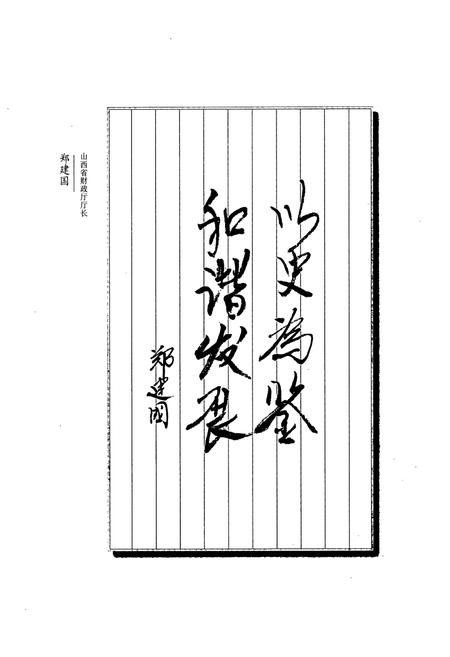 以史为鉴
和谐发展
郑建国
山西省财政厅厅长
郑建国